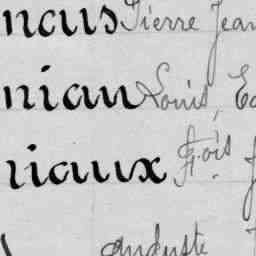 naus Pierre Jean
nian Louis, Ed
niaux Fois. J
Auguste